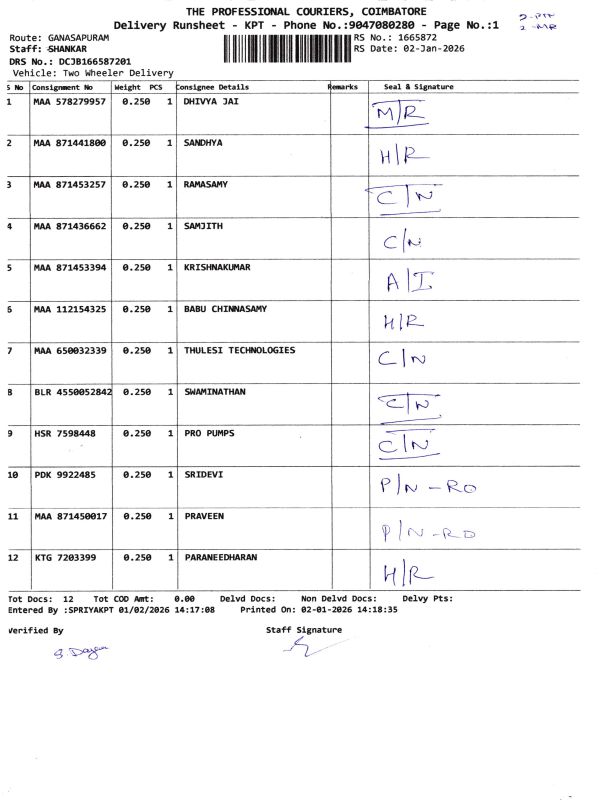 THE PROFESSIONAL COURIERS, COIMBATORE
Delivery Runsheet - KPT - Phone No.:9047080280 - Page No.:1
2 - MR
Route: GANASAPURAM RS No.: 1665872
Staff: SHANKAR RS Date: 02-Jan-2026
DRS No.: DCJB166587201
Vehicle: Two Wheeler Delivery
S No Consignment No Weight PCS Consignee Details Remarks Seal & Signature
1 MAA 578279957 0.250 1 DHIVYA JAI M/R
2 MAA 871441800 0.250 1 SANDHYA H/R
3 MAA 871453257 0.250 1 RAMASAMY C/N
4 MAA 871436662 0.250 1 SAMJITH C/N
5 MAA 871453394 0.250 1 KRISHNAKUMAR A/I
6 MAA 112154325 0.250 1 BABU CHINNASAMY H/R
7 MAA 650032339 0.250 1 THULESI TECHNOLOGIES C/N
8 BLR 4550052842 0.250 1 SWAMINATHAN C/N
9 HSR 7598448 0.250 1 PRO PUMPS C/N
10 PDK 9922485 0.250 1 SRIDEVI P/N - RO
11 MAA 871450017 0.250 1 PRAVEEN P/N - RD
12 KTG 7203399 0.250 1 PARANEEDHARAN H/R
Tot Docs: 12 Tot COD Amt: 0.00 Delvd Docs: Non Delvd Docs: Delvy Pts:
Entered By :SPRIYAKPT 01/02/2026 14:17:08 Printed On: 02-01-2026 14:18:35
Verified By Staff Signature